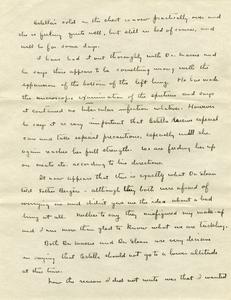 Estella's cold in the chest is now practically over and
she is feeling quite well, but still in bed of course, and
will be for some days.
I have had it out thoroughly with Dr. and
he says there appears to be something wrong with the
expansion of the bottom of the left lung. He has made
the microscopic examination of the sputum and says
it contained no tubercular infection whatever. However
he says it is very important that Estella receive especial
care and take especial precautions, especially until she
again reaches her full strength. We are feeding her up
on meats etc. according to his directions.
It now appears that this is exactly what Dr. Sloan
told Sister Bergins - although they both were afraid of
worrying me and didn't give me the idea about a bad
lung at all. Needless to say, they misfigured my make-up
and I am more than glad to know what we are tackling.
Both Dr. and Dr. Sloan are very decisive
in saying that Estella should not go to a lower altitude
at this time.
the reason I did not write was that I wanted